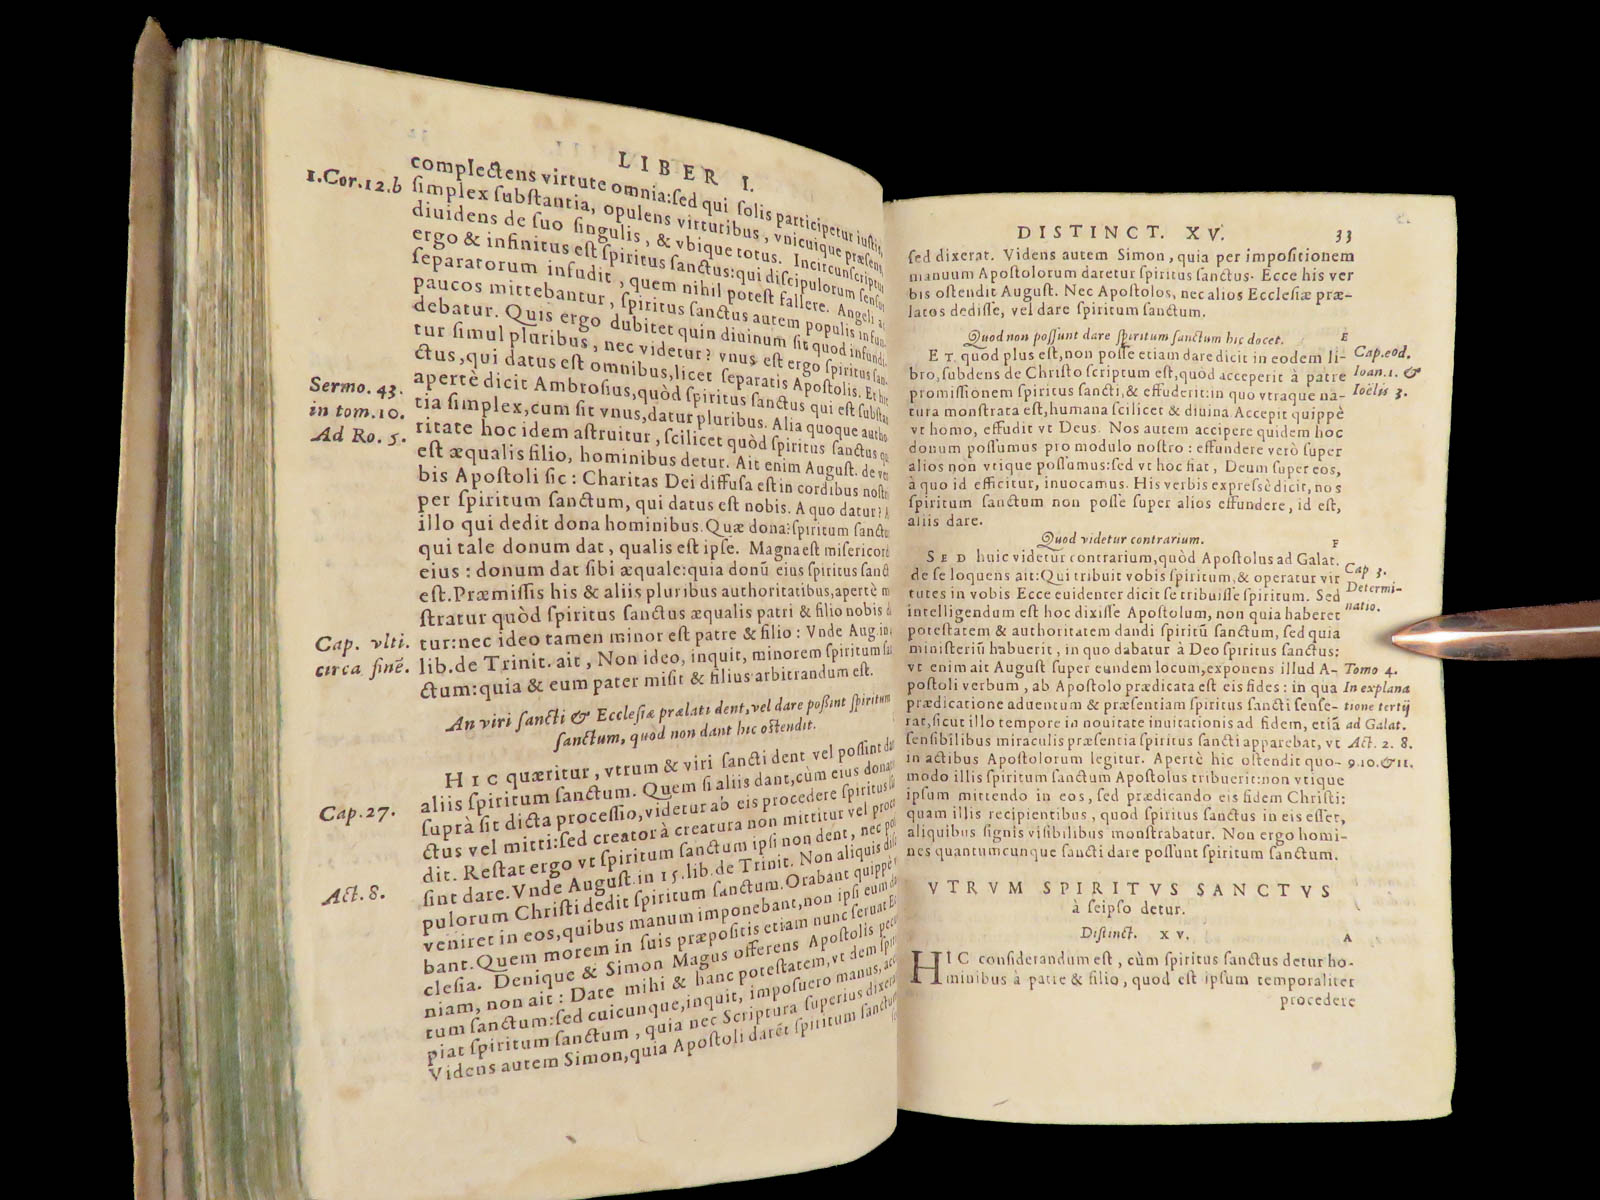 LIBER I.
complectens virtute omnia:sed qui solis participetur iustis,
1.Cor.12.b
simplex substantia, opulens virtutibus, vnicuique præsens,
diuidens de suo singulis, & vbique totus. Incircunscriptus
ergo & infinitus est spiritus sanctus:qui discipulorum sensus
separatorum infudit, quem nihil potest fallere. Angeli ad
paucos mittebantur, spiritus sanctus autem populis infun
debatur. Quis ergo dubitet quin diuinum sit quod infundi
tur simul pluribus, nec videtur? vnus est ergo spiritus san
ctus,qui datus est omnibus,licet separatis Apostolis. Et hic
Sermo. 43.
apertè dicit Ambrosius,quòd spiritus sanctus qui est substan
in tom.10.
tia simplex,cum sit vnus,datur pluribus. Alia quoque autho
Ad Ro. 5.
ritate hoc idem astruitur, scilicet quòd spiritus sanctus qui
est æqualis filio, hominibus detur. Ait enim August. de ver
bis Apostoli sic: Charitas Dei diffusa est in cordibus nostri
per spiritum sanctum, qui datus est nobis. A quo datur? A
illo qui dedit dona hominibus. Quæ dona?spiritum sanctu
qui tale donum dat, qualis est ipse. Magna est misericord
eius: donum dat sibi æquale:quia donū eius spiritus sanct
est. Præmissis his & aliis pluribus authoritatibus,apertè m
stratur quòd spiritus sanctus æqualis patri & filio nobis d
Cap. vlti.
tur:nec ideo tamen minor est patre & filio: Vnde Aug.in
circa finē.
lib.de Trinit. ait, Non ideo, inquit, minorem spiritum san
ctum:quia & eum pater misit & filius arbitrandum est.
An viri sancti & Ecclesiæ prælati dent,vel dare possint spiritum
sanctum, quod non dant hic ostendit.
HIC quæritur, vtrum & viri sancti dent vel possint dar
aliis spiritum sanctum. Quem si aliis dant,cùm eius dona
Cap.27.
suprà sit dicta processio,videtur ab eis procedere spiritus
ctus vel mitti:sed creator à creatura non mittitur vel proc
dit. Restat ergo vt spiritum sanctum ipsi non dent, nec pos
sint dare. Vnde August.in 15.lib.de Trinit. Non aliquis disc
Act. 8.
pulorum Christi dedit spiritum sanctum. Orabant quippe
veniret in eos,quibus manum imponebant,non ipsi eum da
bant. Quem morem in suis præpositis etiam nunc seruat Ec
clesia. Denique & Simon Magus offerens Apostolis pecu
niam, non ait: Date mihi & hanc potestatem,vt dem spiri
tum sanctum:sed cuicunque,inquit, imposuero manus, acci
piat spiritum sanctum, quia nec Scriptura superius dixerat
Videns autem Simon,quia Apostoli darēt spiritum sanctum
DISTINCT. XV. 33
sed dixerat. Videns autem Simon, quia per impositionem
manuum Apostolorum daretur spiritus sanctus. Ecce his ver
bis ostendit August. Nec Apostolos, nec alios Ecclesiæ præ-
latos dedisse, vel dare spiritum sanctum.
Quod non possunt dare spiritum sanctum hic docet. E
ET quòd plus est,non posse etiam dare dicit in eodem li-
Cap.eod.
bro,subdens de Christo scriptum est,quòd acceperit à patre
Ioan.1. &
promissionem spiritus sancti,& effuderit:in quo vtraque na-
Ioëlis 3.
tura monstrata est,humana scilicet & diuina. Accepit quippè
vt homo, effudit vt Deus. Nos autem accipere quidem hoc
donum possumus pro modulo nostro: effundere verò super
alios non vtique possumus:sed vt hoc fiat, Deum super eos,
à quo id efficitur, inuocamus. His verbis expressè dicit, nos
spiritum sanctum non posse super alios effundere, id est,
aliis dare.
Quod videtur contrarium. F
SED huic videtur contrarium,quòd Apostolus ad Galat.
Cap 3.
de se loquens ait:Qui tribuit vobis spiritum,& operatur vir
Determi-
tutes in vobis Ecce euidenter dicit se tribuisse spiritum. Sed
natio.
intelligendum est hoc dixisse Apostolum, non quia haberet
potestatem & authoritatem dandi spiritū sanctum, sed quia
ministeriū habuerit, in quo dabatur à Deo spiritus sanctus:
vt enim ait August super eundem locum,exponens illud A-
Tomo 4.
postoli verbum, ab Apostolo prædicata est eis fides: in qua
In explana
prædicatione aduentum & præsentiam spiritus sancti sense-
tione tertij
rat,sicut illo tempore in nouitate inuitationis ad fidem, etiā
ad Galat.
sensibilibus miraculis præsentia spiritus sancti apparebat, vt
Act. 2. 8.
in actibus Apostolorum legitur. Apertè hic ostendit quo-
9.10.&11.
modo illis spiritum sanctum Apostolus tribuerit:non vtique
ipsum mittendo in eos, sed prædicando eis fidem Christi:
quam illis recipientibus, quod spiritus sanctus in eis esset,
aliquibus signis visibilibus monstrabatur. Non ergo homi-
nes quantumcunque sancti dare possunt spiritum sanctum.
VTRVM SPIRITVS SANCTVS
à seipso detur.
Distinct. XV. A
HIC considerandum est, cùm spiritus sanctus detur ho-
minibus à patre & filio, quod est ipsum temporaliter
procedere